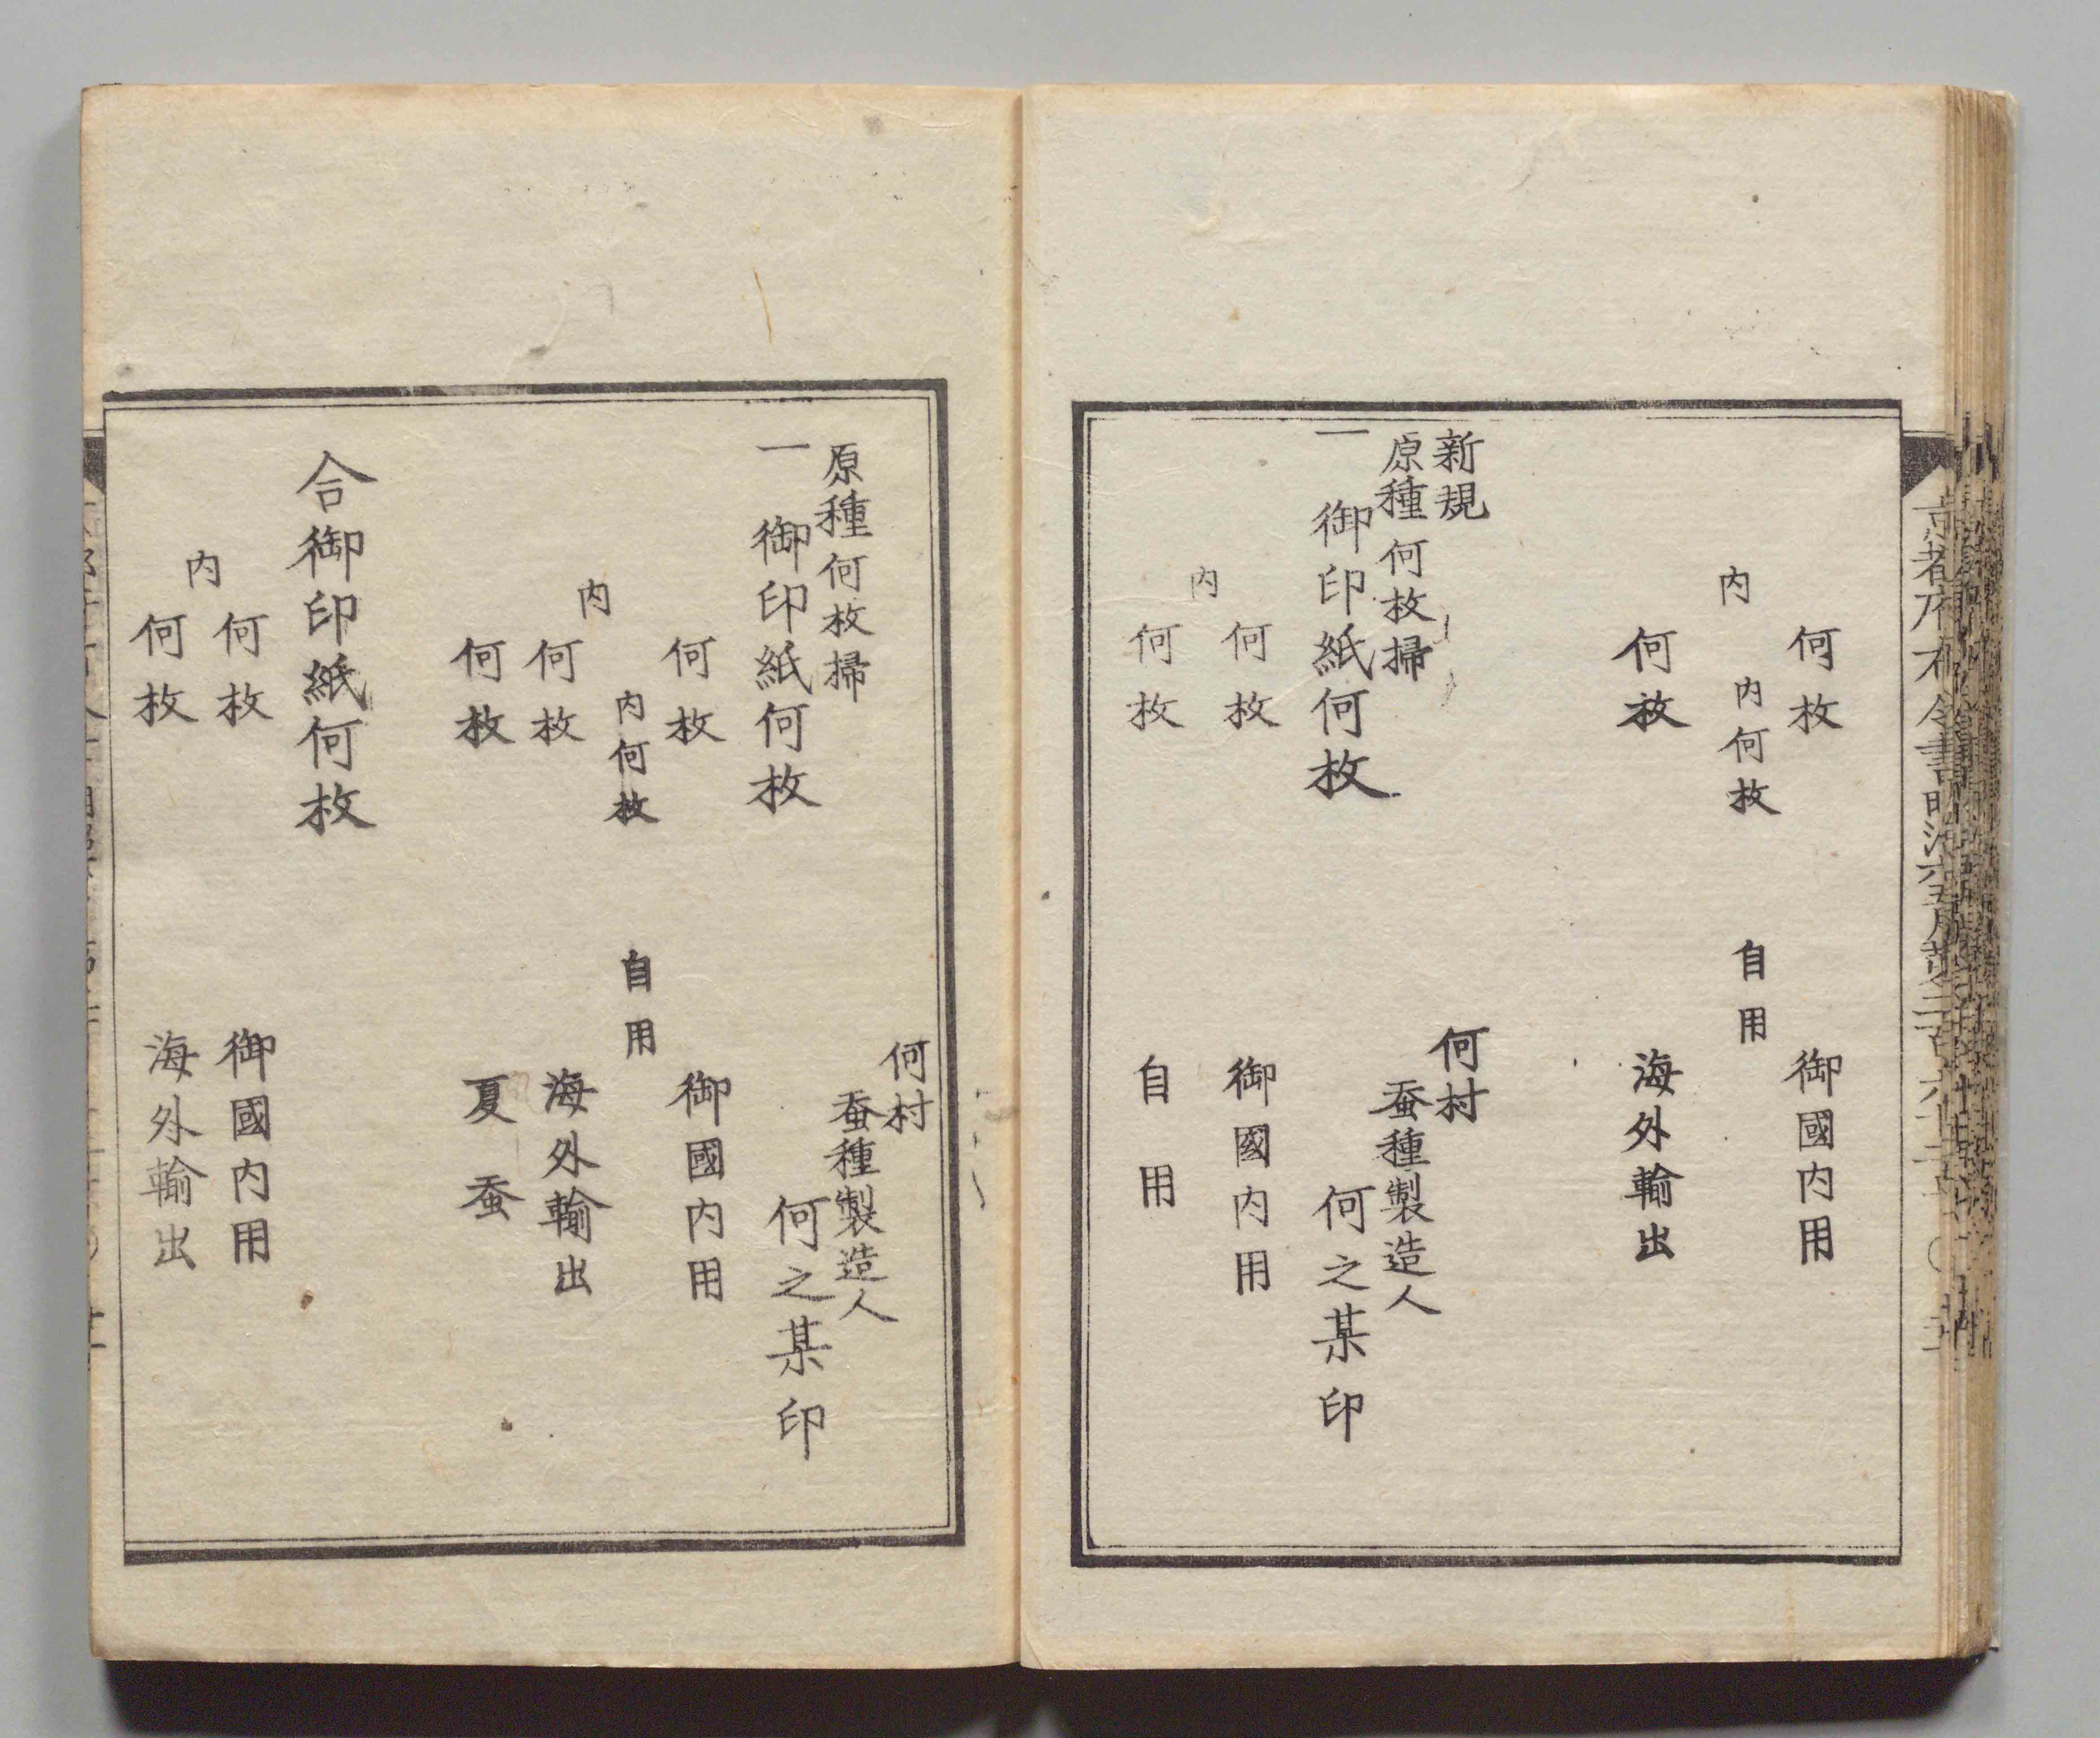 何枚　御國内用
内
内何枚　自用
何枚　海外輸出
新規　何村
原種何枚掃　蚕種製造人
一御印紙何枚　何之某印
何枚　御國内用
内
何枚　自用
何村
原種何枚掃　蚕種製造人
一御印紙何枚　何之某印
何枚　御國内用
内何枚　自用
内
何枚　海外輸出
何枚　夏蚕
合御印紙何枚
何枚　御國内用
内
何枚　海外輸出
京都府布令書明治六五月第二百六十